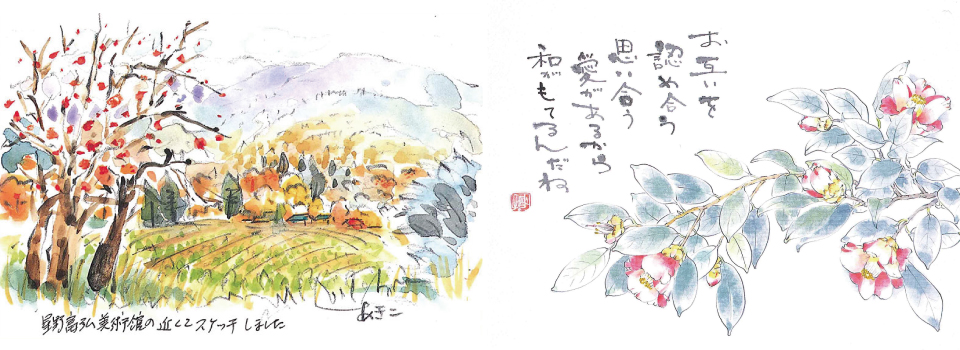 あきこ
星野富弘美術館の近くでスケッチしました
お互いを
認め合う
思い合う
愛があるから
和がもてるんだね